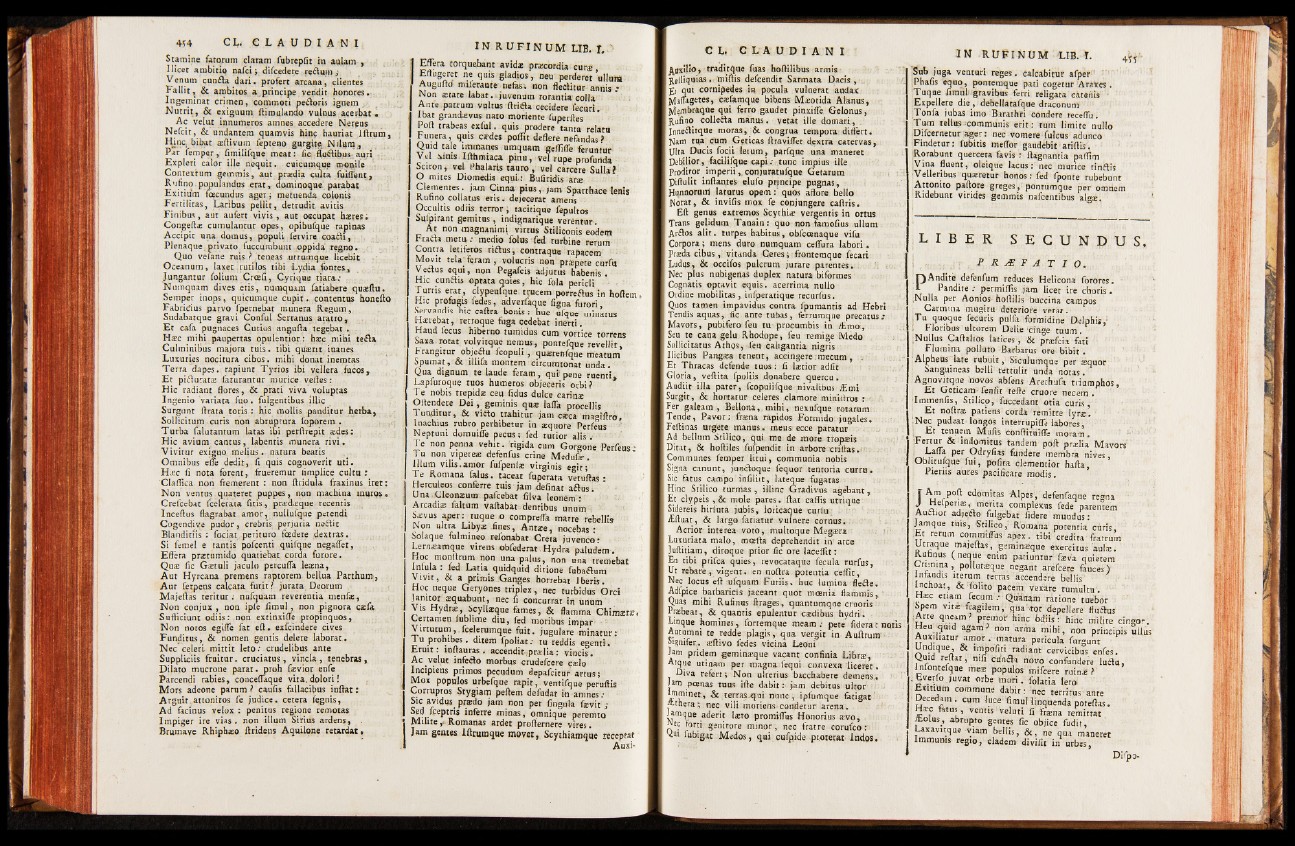 454 CL. CLAUDIANI
Stamine fatorum claram subrepsit in aulam,
Ilicet ambitio nasci; discedere rectum;
Venum cuncta dari. profert arcana, clientes
Fallit, & ambitos a principe vendit honores.
Ingeminat crimen, commoti pectoris ignem
Nutrit, & exiguum stimulando vulnus acerbat.
Ac velut innumeros amnes accedere Nereus
Nescit, & undantem quamvis hinc hauriat Istrum,
Hinc bibat æstivum septeno gurgite Nilum,
Par semper, similisque meat: sic fluctibus auri
Expleri calor ille nequit. cuicumque monile
Contextum gemmis, aut prædia culta fuissent,
Rufino populandus erat, dominoque parabat
Exitium fœcundus ager; metuenda colonis
Fertilitas, Laribus pellit, detrudit avitis
Finibus, aut aufert vivis, aut occupat hæres;
Congestæ cumulantur opes, opibusque rapinas
Accipit una domus, populi servire coacti,
Plenaque privato succumbunt oppida regno.
Quo vesane ruis? teneas utrumque licebit
Oceanum, laxet rutilos tibi Lydia fontes,
Jungantur solium Crœsi, Cyrique tiara:
Numquam dives eris, numquam satiabere quæstu.
Semper inops, quicumque cupit. contentus honesto
Fabricius parvo spernebat munera Regum,
Sudabatque gravi Consul Serranus aratro,
Et casa pugnaces Curios angusta tegebat.
Hæc mihi paupertas opulentior; hæc mihi tecta
Culminibus majora tuis. tibi quærit inanes
Luxuries nocitura cibos. mihi donat inemtas
Terra dapes. rapiunt Tyrios ibi vellera sucos,
Et picturatæ saturantur murice vestes:
Hic radiant flores, & prati viva voluptas
Ingenio variata suo. fulgentibus illic
Surgunt strata toris: hic mollis panditur herba,
Sollicitum curis non abruptura soporem.
Turba salutantum latas ibi perstrepit ædes:
Hic avium cantus, labentis munera rivi.
Vivitur exiguo melius. natura beatis
Omnibus esse dedit, si quis cognoverit uti.
Hæc si nota forent, frueremur simplice cultu:
Classica non fremerent: non stridula fraxinus iret:
Non ventus quateret puppes, non machina muros.
Crescebat scelerata sitis, prædæque recentis
Incestus flagrabat amor, nullusque petendi
Cogendive pudor, crebris perjuria nectit
Blanditiis: sociat perituro fœdere dextras.
Si semel e tantis poscenti quisque negasset,
Effera prætumido quatiebat corda furore.
Quæ sic Gætuli jaculo percussa leæna,
Aut Hyrcana premens raptorem bellua Parthum,
Aut serpens calcata furit? jurata Deorum
Majestas teritur: nusquam reverentia mensæ,
Non conjux, non ipse simul, non pignora cæsa
Sufficiunt odiis: non extinxisse propinquos,
Non notos egisse sat est. exscindere cives
Funditus, & nomen gentis delere laborat.
Nec celeri mittit leto: crudelibus ante
Suppliciis fruitur. cruciatus, vincla, tenebras,
Dilato mucrone parat. proh sævior ense
Parcendi rabies, concessaque vita dolori!
Mors adeone parum? causis fallacibus instat:
Arguit attonitos se judice. cetera segnis,
Ad facinus velox: penitus regione remotas
Impiger ire vias. non illum Sirius ardens,
Brumave Rhiphæo stridens Aquilone retardat.
IN RUFINUM LIB. I.
Effera torquebant avidæ præcordia curæ,
Effugeret ne quis gladios, neu perderet ullum
Augusto miserante nefas. non flectitur annis:
Non ætate labat. juvenum rorantia colla
Ante patrum vultus stricta cecidere securi.
Ibat grandævus nato moriente superstes
Post trabeas exsul. quis prodere tanta relatu
Funera, quis cædes possit deflere nefandas?
Quid tale immanes umquam gessisse feruntur
Vel sinis Isthmiaca pinu, vel rupe profunda
Sciron, vel Phalaris tauro, vel carcere Sulla?
O mites Diomedis equi: Busiridis aræ
Clementes. jam Cinna pius, jam Sparthace lenis
Rufino collatus eris. dejecerat amens
Occultis odiis terror; tacitique sepultos
Suspirant gemitus, indignarique verentur.
At non magnanimi virtus Stiliconis eodem
Fracta metu: medio solus sed turbine rerum
Contra letiferos rictus, contraque rapacem
Movit tela feram, volucris non præpete cursu
Vectus equi, non Pegaseis adjutus habenis.
Hic cunctis optata quies, hic sola pericli
Turris erat, clypeusque trucem porrectus in hostem,
Hic profugis sedes, adversæque signa furori,
Servandis hic castra bonis: huc usque minatus
Hæcebat, retroque fuga cedebat inerti.
Haud secus hiberno tumidus cum vortice torrens
Saxa rotat volvitque nemus, pontesque revellit,
Frangitur objectu scopuli, quærensque meatum
Spumat, & illisa montem circumtonat unda.
Qua dignum te laude feram, qui pene ruenti,
Lapsuroque tuos humeros objeceris orbi?
Te nobis trepidæ ceu sidus dulce carinæ
Ostendere Dei, geminis quæ lassa procellis
Tunditur, & victo trahitur jam cæca magistro,
Inachius rubro perhibetur in æquore Perseus
Neptuni domuisse pecus: sed tutior alis.
Te non penna vehit. rigida cum Gorgone Perseus:
Tu non vipereæ defensus crine Medusæ.
Illum vilis amor suspensæ virginis egit;
Te Romana salus. taceat superata vetustas:
Herculeos conferre tuis jam desinat actus.
Una Cleonæum pascebat silva leonem:
Arcadiæ saltum vastabat dentibus unum
Sævus aper: tuque o compressa matre rebellis
Non ultra Libyæ fines, Antæe, nocebas:
Solaque fulmineo resonabat Creta juvenco:
Lernæamque virens obsederat Hydra paludem.
Hoc monstrum non una palus, non una tremebat
Insula: sed Latia quidquid ditione subactum
Vivit, & a primis Ganges horrebat Iberis.
Hoc neque Geryones triplex, nec turbidus Orci
Janitor æquabunt, nec si concurrat in unum
Vis Hydræ, Scyllæque fames, & flamma Chimæræ.
Certamen sublime diu, sed moribus impar
Virtutum, scelerumque fuit. jugulare minatur:
Tu prohibes. ditem spoliat: tu reddis egenti.
Eruit: instauras. accendit prælia: vincis.
Ac velut infecto morbus crudescere cælo
Incipiens primos pecudum depascitur artus;
Mox populos urbesque rapit, ventisque perustis
Corruptos Stygiam pestem desudat in amnes:
Sic avidus prædo jam non per singula sævit;
Sed sceptris inferre minas, omnique peremto
Milite, Romanas ardet prosternere vires.
Jam gentes Istrumque movet, Scythiamque receptat
Auxi-
CL. CLAUDIANI
Auxilio, traditque suas hostilibus armis
Relliquias. mistis descendit Sarmata Dacis,
Et qui cornipedes in pocula vulnerat audax
Massagetes, cæsamque bibens Mæotida Alanus,
Membraque qui ferro gaudet pinxisse Gelonus,
Rufino collecta manus. vetat ille domari,
Innectitque moras, & congrua tempora differt.
Nam tua cum Geticas stravisset dextra catervas,
Ulta Ducis socii letum, parsque una maneret
Debilior, facilisque capi: tunc impius ille
Proditor imperii, conjuratusque Getarum
Distulit instantes eluso principe pugnas,
Hunnorum laturus opem: quos affore bello
Norat, & invisis mox se conjungere castris.
Est genus extremos Scythiæ vergentis in ortus
Trans gelidum Tanain: quo non famosius ullum
Arctos alit. turpes habitus, obscœnaque visu
Corpora; mens duro numquam cessura labori.
Præda cibus, vitanda Ceres; frontemque secari
Ludus, & occisos pulcrum jurare parentes.
Nec plus nubigenas duplex natura biformes
Cognatis optavit equis. acerrima nullo
Ordine mobilitas, insperatique recursus.
Quos tamen impavidus contra spumantis ad Hebri
Tendis aquas, sic ante tubas, ferrumque precatus:
Mavors, pubifero seu tu procumbis in Æmo,
Seu te cana gelu Rhodope, seu remige Medo
Sollicitatus Athos, seu caligantia nigris
Ilicibus Pangæa tenent, accingere mecum,
Et Thracas defende tuos: si lætior adsit
Gloria, vestita spoliis donabere quercu.
Audiit illa pater, scopulisque nivalibus Æmi
Surgit, & hortatur celeres clamore ministros:
Fer galeam, Bellona, mihi, nexusque rotarum
Tende, Pavor: fræna rapidos Formido jugales.
Festinas urgete manus. meus ecce paratur
Ad bellum Stilico, qui me de more tropæis
Ditat, & hostiles suspendit in arbore cristas.
Communes semper litui, communia nobis
Signa canunt, junctoque sequor tentoria curru.
Sic fatus campo insiliit, lateque fugatas
Hinc Stilico turmas, illinc Gradivus agebant,
Et clypeis, & mole pares. stat cassis utrique
Sidereis hirsuta jubis, loricaque cursu
Æstuat, & largo satiatur vulnere cornus.
Acrior interea voto, multoque Megæra
Luxuriata malo, mœsta deprehendit in arce
Justitiam, diroque prior sic ore lacessit:
En tibi prisca quies, revocataque secula rursus,
Ut rebare, vigent. en nostra potentia cessit,
Nec locus est usquam Furiis. huc lumina flecte.
Adspice barbaricis jaceant quot mœnia flammis,
Quas mihi Rufinus strages, quantumque cruoris
Præbeat, & quantis epulentur cædibus hydri.
Linque homines, sortemque meam: pete sidera: notis
Autumni te redde plagis, qua vergit in Austrum
Signifer. æstivo sedes vicina Leoni
Jam pridem geminæque vacant confinia Libræ,
Atque utinam per magna sequi convexa liceret.
Diva refert; Non ulterius bacchabere demens.
Jam pœnas tuus iste dabit: jam debitus ultor
Imminet, & terras qui nunc, ipsumque fatigat
Æthera; nec vili moriens condetur arena.
Jamque aderit læto promissus Honorius ævo,
Nec forti genitore minor, nec fratre corusco:
Qui subigat Medos, qui cuspide proterat Indos.
IN RUFINUM LIB. I. 455
Sub juga venturi reges. calcabitur asper
Phasis equo, pontemque pati cogetur Araxes.
Tuque simul gravibus ferri religata catenis
Expellere die, debellatasque draconum
Tonsa jubas imo Barathri condere recessu.
Tum tellus communis erit: tum limite nullo
Discernetur ager: nec vomere sulcus adunco
Findetur: subitis messor gaudebit aristis.
Rorabunt quercera favis: stagnantia passim
Vina fluent, oleique lacus: nec murice tinctis
Velleribus quæretur honos: sed sponte rubebunt
Attonito pastore greges, pontumque per omnem
Ridebunt virides gemmis nascentibus algæ.
LIBER SECUNDUS.
PRÆFATIO.
PAndite defensum reduces Helicona sorores.
Pandite: permissis jam licet ire choris.
Nulla per Aonios hostilis buccina campus
Carmina mugitu deteriore vetat.
Tu quoque securis pulsa formidine Delphis,
Floribus ultorem Delie cinge tuum.
Nullus Castalios latices, & præscia fati
Flumina polluto Barbarus ore bibit.
Alpheus late rubuit, Siculumque per æquor
Sanguineas belli rettulit unda notas.
Agnovitque novos absens Arethusa triumphos,
Et Geticam sensit teste cruore necem.
Immensis, Stilico, succedant otia curis,
Et nostræ patiens corda remitte lyræ.
Nec pudeat longos interrupisse labores,
Et tenuem Musis constituisse moram.
Fertur & indomitus tandem post prælia Mavors
Lassa per Odrysias fundere membra nives,
Oblitusque sui, posita clementior hasta,
Pieriis aures pacificare modis.
JAm post edomitas Alpes, defensaque regna
Hesperiæ, merita complexus sede parentem
Auctior adjecto fulgebat sidere mundus:
Jamque tuis, Stilico, Romana potentia curis,
Et rerum commissus apex. tibi credita fratrum
Utraque majestas, geminæque exercitus aulæ.
Rufinus (neque enim patiuntur sæva quietem
Crimina, pollutæque negant arescere fauces)
Infandis iterum terras accendere bellis
Inchoat, & solito pacem vexare tumultu.
Hæc etiam secum: Quanam ratione tuebor
Spem vitæ fragilem, qua tot depellere fluctus
Arte queam? premor hinc odiis: hinc milite cingor.
Heu quid agam? non arma mihi, non principis ullus
Auxiliatur amor. matura pericula surgunt
Undique, & impositi radiant cervicibus enses.
Quid restat, nisi cuncta novo confundere luctu,
Infontesque meæ populos miscere ruinæ?
Everso juvat orbe mori. solatia leto
Exitium commune dabit: nec territus ante
Decedam. cum luce simul linquenda potestas.
Hæc fatus, ventis veluti si fræna remittat
Æolus, abrupto gentes sic objice fudit,
Laxavitque viam bellis, &, ne qua maneret
Immunis regio, cladem divisit in urbes,
Dispo-